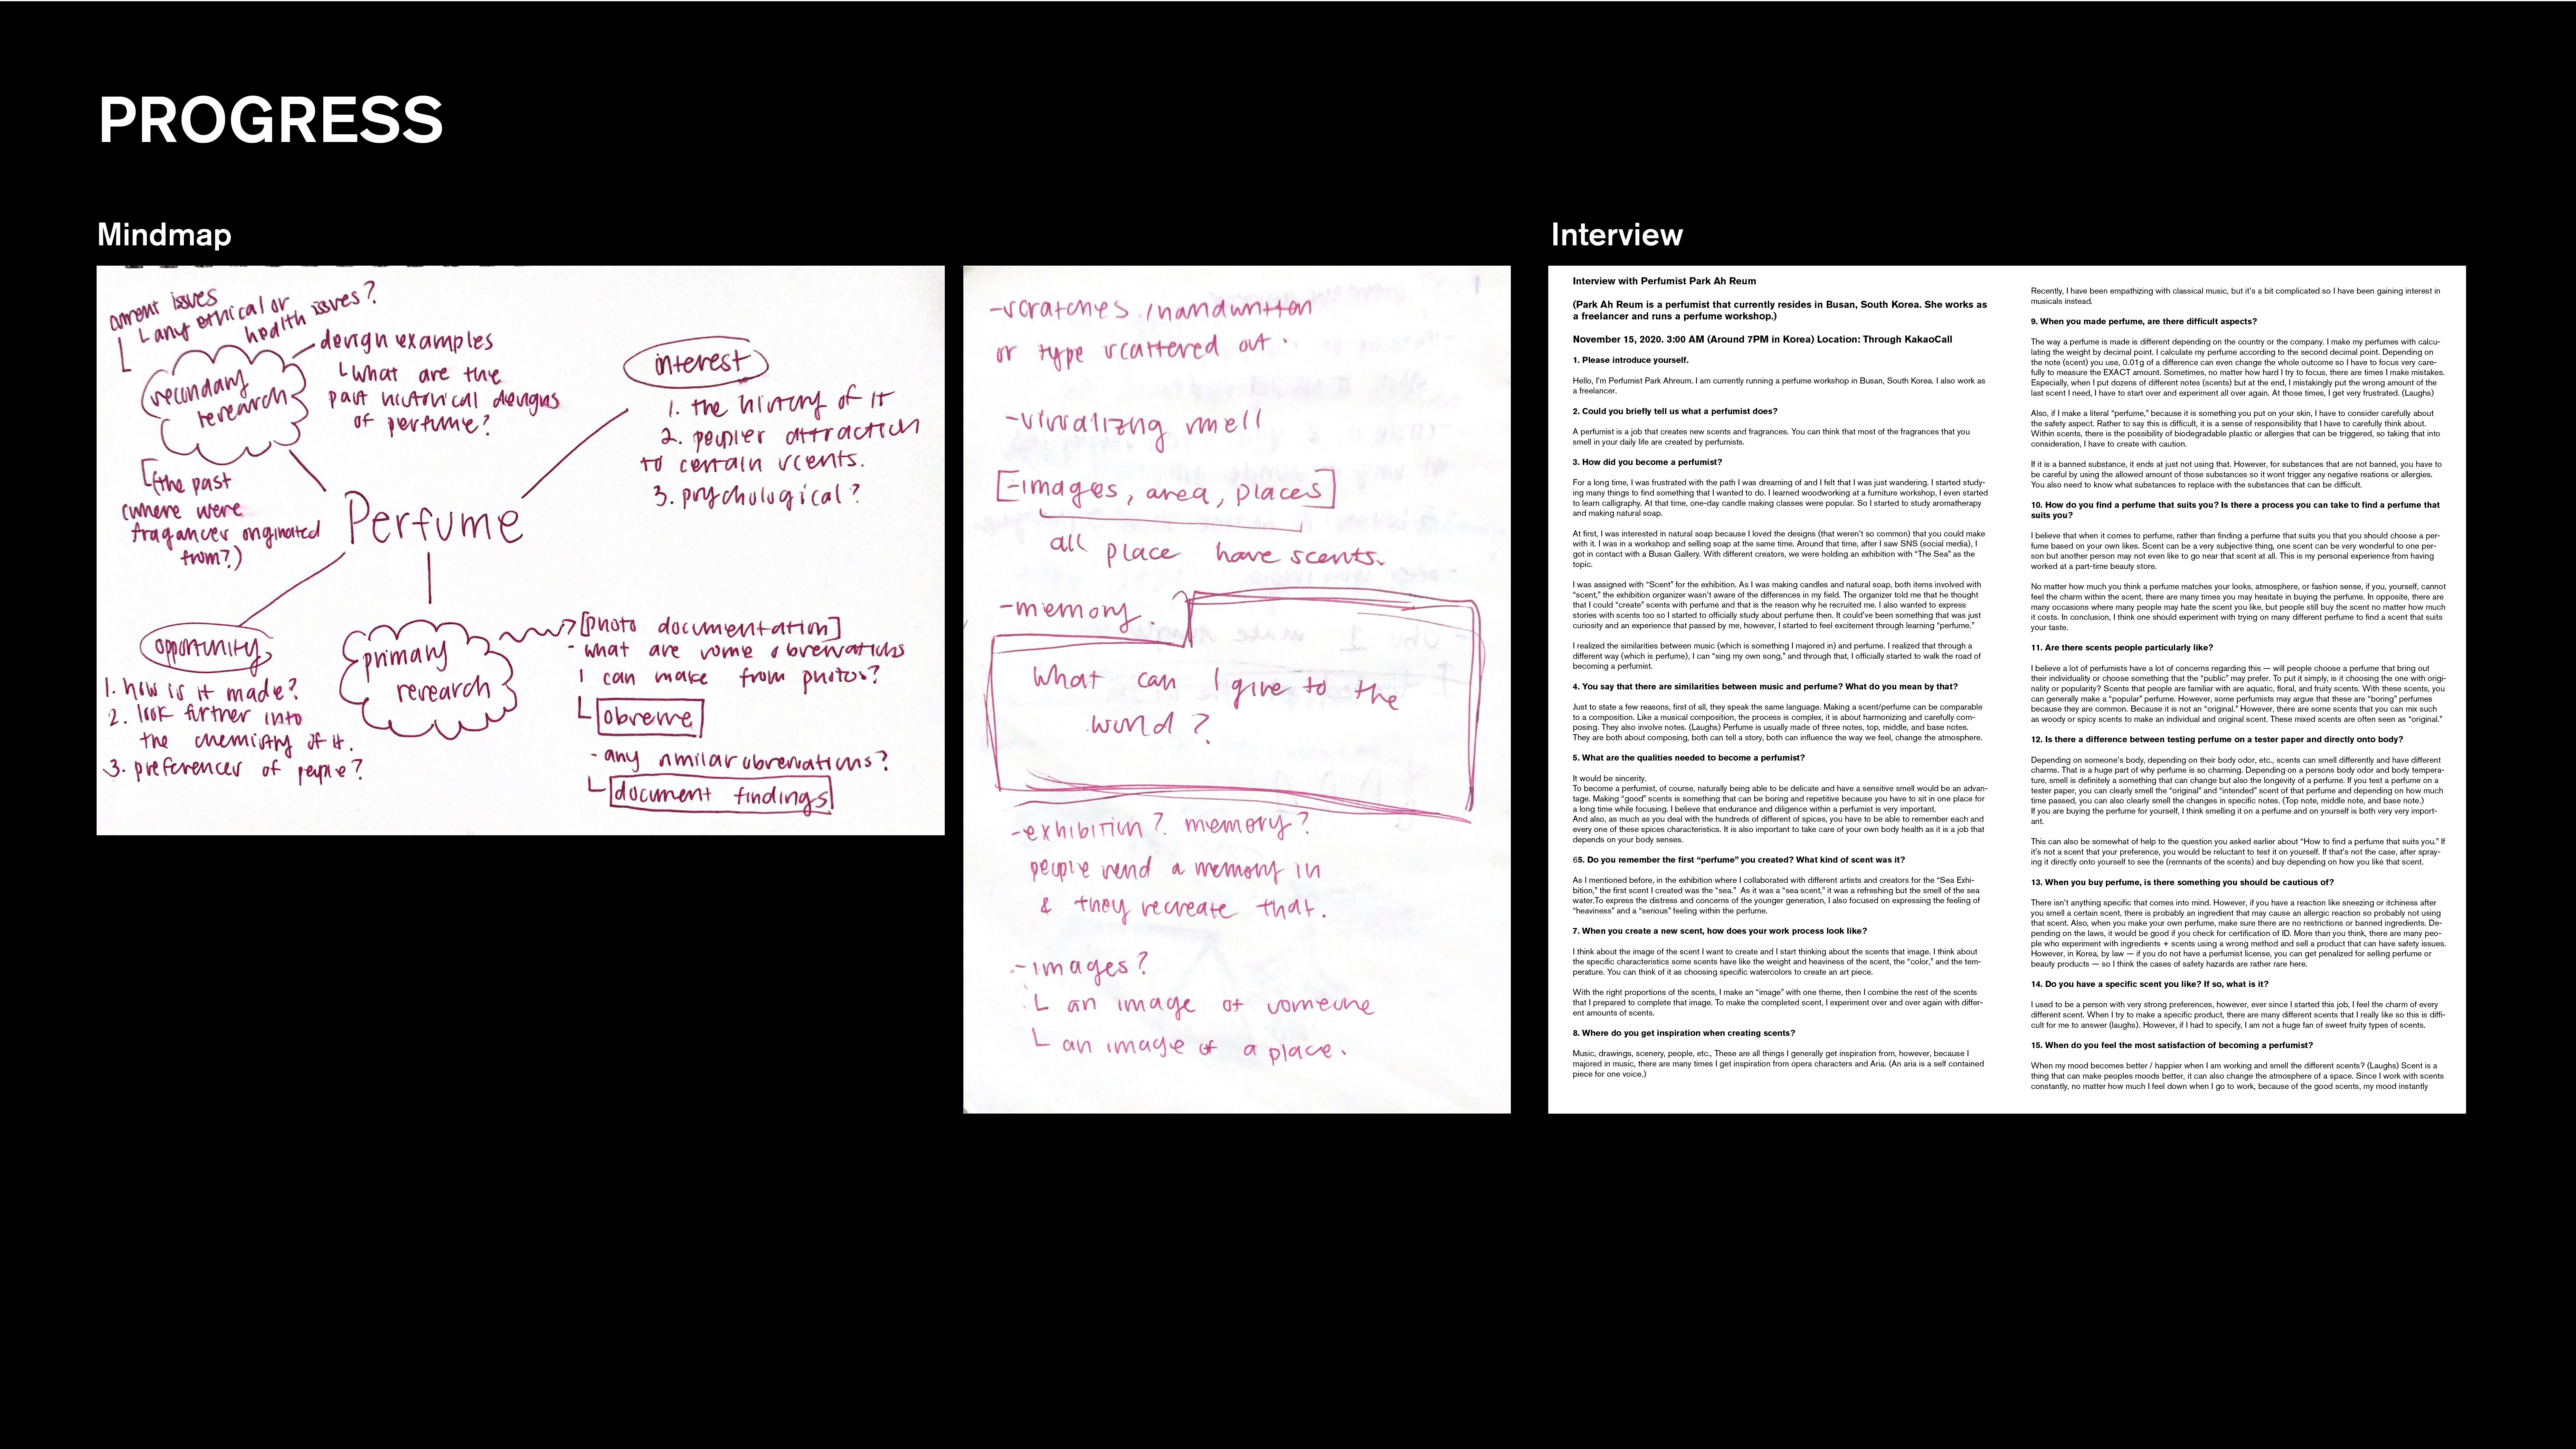 PROGRESS
Mindmap
current issues
any ethical or
health issues?
secondary
research
design examples
What are the
past historical designs
of perfume?
(the past
(where were
fragances originated
from?)
interest
1. the history of it
2. peoples attraction
to certain scents.
3. psychological?
Perfume
opportunity
1. how is it made?
2. look further into
the chemistry of it.
3. preferences of people?
primary
research
[photo documentation]
- what are some observations
I can make from photos?
observe
- any similar observations?
document findings
- scratches / handwritten
or type scattered out.
- visualizing smell
[- images, area, places]
all place have scents.
- memory.
What can I give to the
world?
- exhibition? memory?
people send a memory in
& they recreate that.
- images?
an image of someone
an image of a place.
Interview
Interview with Perfumist Park Ah Reum
(Park Ah Reum is a perfumist that currently resides in Busan, South Korea. She works as
a freelancer and runs a perfume workshop.)
November 15, 2020. 3:00 AM (Around 7PM in Korea) Location: Through KakaoCall
1. Please introduce yourself.
Hello, I'm Perfumist Park Ahreum. I am currently running a perfume workshop in Busan, South Korea. I also work as
a freelancer.
2. Could you briefly tell us what a perfumist does?
A perfumist is a job that creates new scents and fragrances. You can think that most of the fragrances that you
smell in your daily life are created by perfumists.
3. How did you become a perfumist?
For a long time, I was frustrated with the path I was dreaming of and I felt that I was just wandering. I started study-
ing many things to find something that I wanted to do. I learned woodworking at a furniture workshop, I even started
to learn calligraphy. At that time, one-day candle making classes were popular. So I started to study aromatherapy
and making natural soap.
At first, I was interested in natural soap because I loved the designs (that weren't so common) that you could make
with it. I was in a workshop and selling soap at the same time. Around that time, after I saw SNS (social media), I
got in contact with a Busan Gallery. With different creators, we were holding an exhibition with “The Sea” as the
topic.
I was assigned with “Scent” for the exhibition. As I was making candles and natural soap, both items involved with
“scent,” the exhibition organizer wasn't aware of the differences in my field. The organizer told me that he thought
that I could “create” scents with perfume and that is the reason why he recruited me. I also wanted to express
stories with scents too so I started to officially study about perfume then. It could've been something that was just
curiosity and an experience that passed by me, however, I started to feel excitement through learning “perfume.”
I realized the similarities between music (which is something I majored in) and perfume. I realized that through a
different way (which is perfume), I can “sing my own song,” and through that, I officially started to walk the road of
becoming a perfumist.
4. You say that there are similarities between music and perfume? What do you mean by that?
Just to state a few reasons, first of all, they speak the same language. Making a scent/perfume can be comparable
to a composition. Like a musical composition, the process is complex, it is about harmonizing and carefully com-
posing. They also involve notes. (Laughs) Perfume is usually made of three notes, top, middle, and base notes.
They are both about composing, both can tell a story, both can influence the way we feel, change the atmosphere.
5. What are the qualities needed to become a perfumist?
It would be sincerity.
To become a perfumist, of course, naturally being able to be delicate and have a sensitive smell would be an advan-
tage. Making “good” scents is something that can be boring and repetitive because you have to sit in one place for
a long time while focusing. I believe that endurance and diligence within a perfumist is very important.
And also, as much as you deal with the hundreds of different of spices, you have to be able to remember each and
every one of these spices characteristics. It is also important to take care of your own body health as it is a job that
depends on your body senses.
65. Do you remember the first “perfume” you created? What kind of scent was it?
As I mentioned before, in the exhibition where I collaborated with different artists and creators for the “Sea Exhi-
bition,” the first scent I created was the “sea.” As it was a “sea scent,” it was a refreshing but the smell of the sea
water.To express the distress and concerns of the younger generation, I also focused on expressing the feeling of
“heaviness” and a “serious” feeling within the perfume.
7. When you create a new scent, how does your work process look like?
I think about the image of the scent I want to create and I start thinking about the scents that image. I think about
the specific characteristics some scents have like the weight and heaviness of the scent, the “color,” and the tem-
perature. You can think of it as choosing specific watercolors to create an art piece.
With the right proportions of the scents, I make an “image” with one theme, then I combine the rest of the scents
that I prepared to complete that image. To make the completed scent, I experiment over and over again with differ-
ent amounts of scents.
8. Where do you get inspiration when creating scents?
Music, drawings, scenery, people, etc., These are all things I generally get inspiration from, however, because I
majored in music, there are many times I get inspiration from opera characters and Aria. (An aria is a self contained
piece for one voice.)
Recently, I have been empathizing with classical music, but it's a bit complicated so I have been gaining interest in
musicals instead.
9. When you made perfume, are there difficult aspects?
The way a perfume is made is different depending on the country or the company. I make my perfumes with calcu-
lating the weight by decimal point. I calculate my perfume according to the second decimal point. Depending on
the note (scent) you use, 0.01g of a difference can even change the whole outcome so I have to focus very care-
fully to measure the EXACT amount. Sometimes, no matter how hard I try to focus, there are times I make mistakes.
Especially, when I put dozens of different notes (scents) but at the end, I mistakingly put the wrong amount of the
last scent I need, I have to start over and experiment all over again. At those times, I get very frustrated. (Laughs)
Also, if I make a literal “perfume,” because it is something you put on your skin, I have to consider carefully about
the safety aspect. Rather to say this is difficult, it is a sense of responsibility that I have to carefully think about.
Within scents, there is the possibility of biodegradable plastic or allergies that can be triggered, so taking that into
consideration, I have to create with caution.
If it is a banned substance, it ends at just not using that. However, for substances that are not banned, you have to
be careful by using the allowed amount of those substances so it wont trigger any negative reations or allergies.
You also need to know what substances to replace with the substances that can be difficult.
10. How do you find a perfume that suits you? Is there a process you can take to find a perfume that
suits you?
I believe that when it comes to perfume, rather than finding a perfume that suits you that you should choose a per-
fume based on your own likes. Scent can be a very subjective thing, one scent can be very wonderful to one per-
son but another person may not even like to go near that scent at all. This is my personal experience from having
worked at a part-time beauty store.
No matter how much you think a perfume matches your looks, atmosphere, or fashion sense, if you, yourself, cannot
feel the charm within the scent, there are many times you may hesitate in buying the perfume. In opposite, there are
many occasions where many people may hate the scent you like, but people still buy the scent no matter how much
it costs. In conclusion, I think one should experiment with trying on many different perfume to find a scent that suits
your taste.
11. Are there scents people particularly like?
I believe a lot of perfumists have a lot of concerns regarding this — will people choose a perfume that bring out
their individuality or choose something that the “public” may prefer. To put it simply, is it choosing the one with origi-
nality or popularity? Scents that people are familiar with are aquatic, floral, and fruity scents. With these scents, you
can generally make a “popular” perfume. However, some perfumists may argue that these are “boring” perfumes
because they are common. Because it is not an “original.” However, there are some scents that you can mix such
as woody or spicy scents to make an individual and original scent. These mixed scents are often seen as “original.”
12. Is there a difference between testing perfume on a tester paper and directly onto body?
Depending on someone's body, depending on their body odor, etc., scents can smell differently and have different
charms. That is a huge part of why perfume is so charming. Depending on a persons body odor and body tempera-
ture, smell is definitely a something that can change but also the longevity of a perfume. If you test a perfume on a
tester paper, you can clearly smell the “original” and “intended” scent of that perfume and depending on how much
time passed, you can also clearly smell the changes in specific notes. (Top note, middle note, and base note.)
If you are buying the perfume for yourself, I think smelling it on a perfume and on yourself is both very very import-
ant.
This can also be somewhat of help to the question you asked earlier about “How to find a perfume that suits you.” If
it's not a scent that your preference, you would be reluctant to test it on yourself. If that's not the case, after spray-
ing it directly onto yourself to see the (remnants of the scents) and buy depending on how you like that scent.
13. When you buy perfume, is there something you should be cautious of?
There isn't anything specific that comes into mind. However, if you have a reaction like sneezing or itchiness after
you smell a certain scent, there is probably an ingredient that may cause an allergic reaction so probably not using
that scent. Also, when you make your own perfume, make sure there are no restrictions or banned ingredients. De-
pending on the laws, it would be good if you check for certification of ID. More than you think, there are many peo-
ple who experiment with ingredients + scents using a wrong method and sell a product that can have safety issues.
However, in Korea, by law — if you do not have a perfumist license, you can get penalized for selling perfume or
beauty products — so I think the cases of safety hazards are rather rare here.
14. Do you have a specific scent you like? If so, what is it?
I used to be a person with very strong preferences, however, ever since I started this job, I feel the charm of every
different scent. When I try to make a specific product, there are many different scents that I really like so this is diffi-
cult for me to answer (laughs). However, if I had to specify, I am not a huge fan of sweet fruity types of scents.
15. When do you feel the most satisfaction of becoming a perfumist?
When my mood becomes better / happier when I am working and smell the different scents? (Laughs) Scent is a
thing that can make peoples moods better, it can also change the atmosphere of a space. Since I work with scents
constantly, no matter how much I feel down when I go to work, because of the good scents, my mood instantly